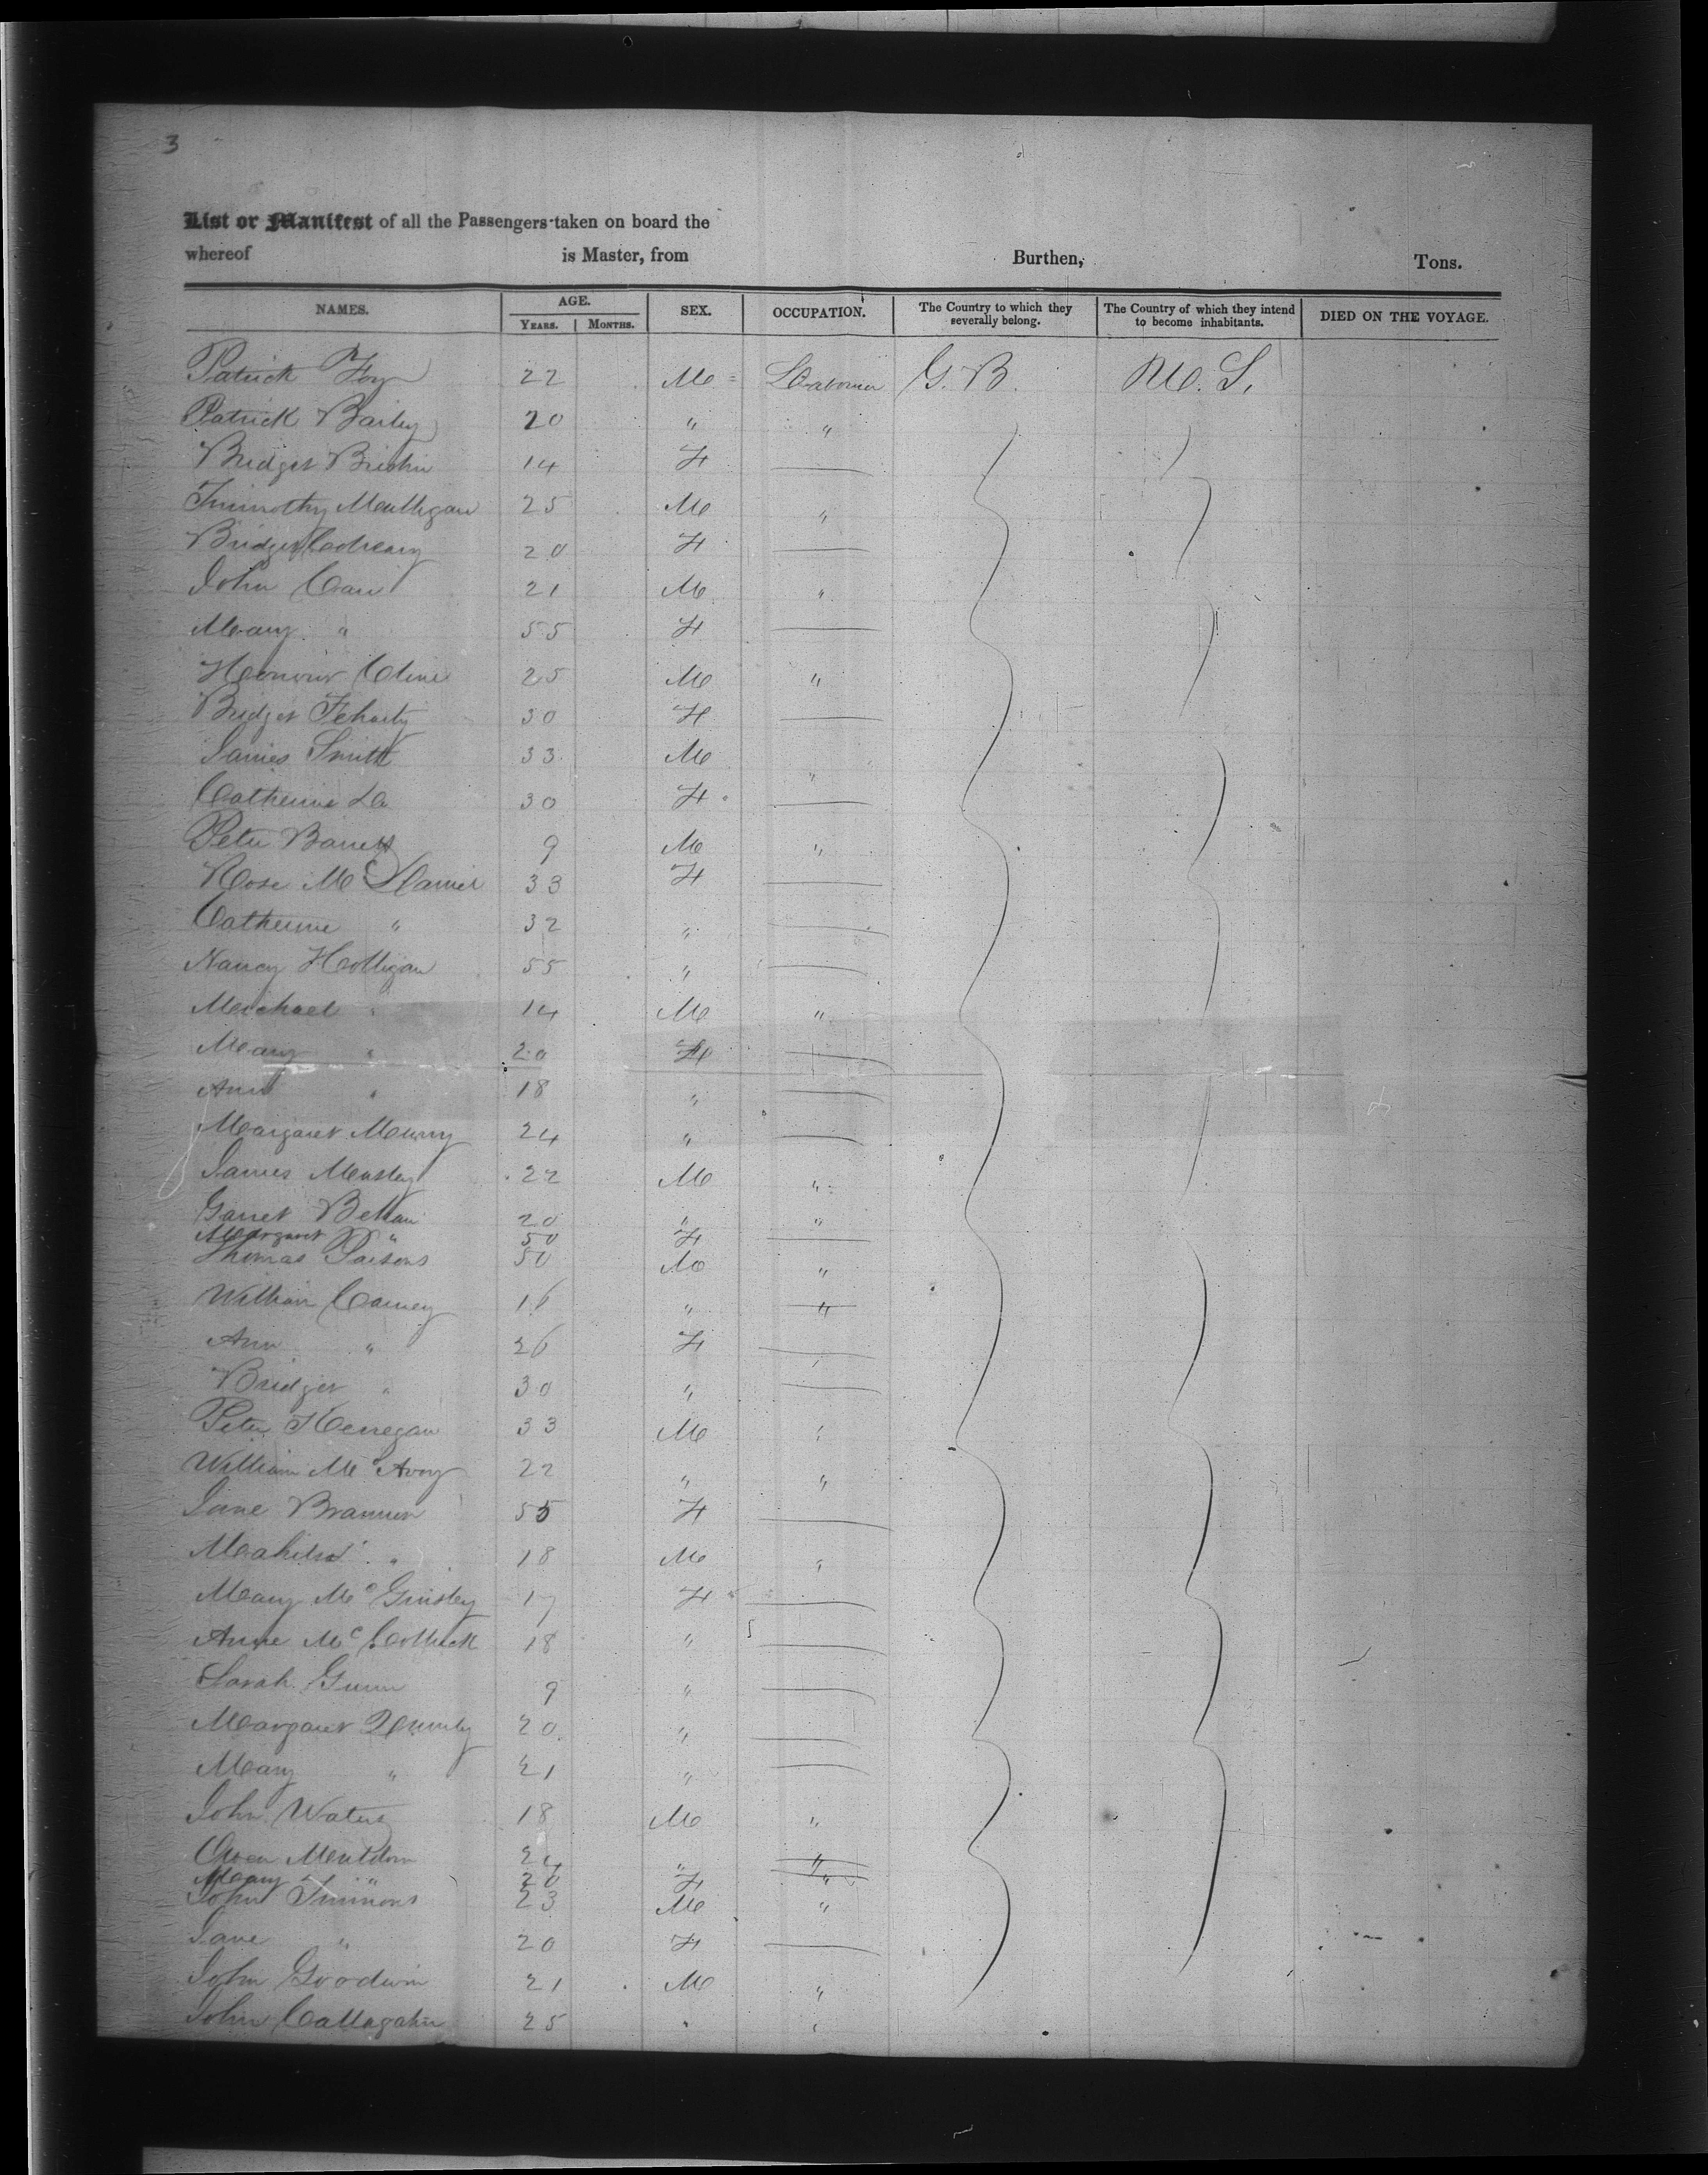 3
List or Manifest of all the Passengers taken on board the
whereof is Master, from Burthen, Tons.
NAMES. AGE. SEX. OCCUPATION. The Country to which they severally belong. The Country of which they intend to become inhabitants. DIED ON THE VOYAGE.
YEARS. MONTHS.
Patrick Foy 22 M Laborer G. B. U. S.
Patrick Bailey 20 " "
Bridget 14 F
Timmothy Mulligan 25 M "
Bridget 20 F
John Carr 21 M "
Mary " 55 F
Cline 25 M "
Bridget Feharty 30 F
James Smith 33 M "
Catherine Do 30 F
Peter Barrett 9 M "
Rose Mc Daniel 33 F
Catherine " 32 "
Nancy Holligan 55 "
Michael " 14 M "
Mary " 20 F
Ann " 18 "
Margaret Murry 24 "
James 22 M "
Garret 20 " "
Margaret " 50 F
Thomas Parsons 50 M "
William Carney 16 " "
Ann " 26 F
Bridget " 30 "
Peter Henegan 33 M "
William Mc Avoy 22 " "
Jane Brannen 55 F
" 18 M "
Mary Mc Ginsley 17 F
Anne Mc Collick 18 "
Sarah Gunn 9 "
Margaret 20 "
Mary " 21 "
John Waters 18 M "
Owen 24 " "
Mary " 20 F "
John Timmons 23 M "
Jane " 20 F
John Goodwin 21 M "
John Callagahn 25 " "